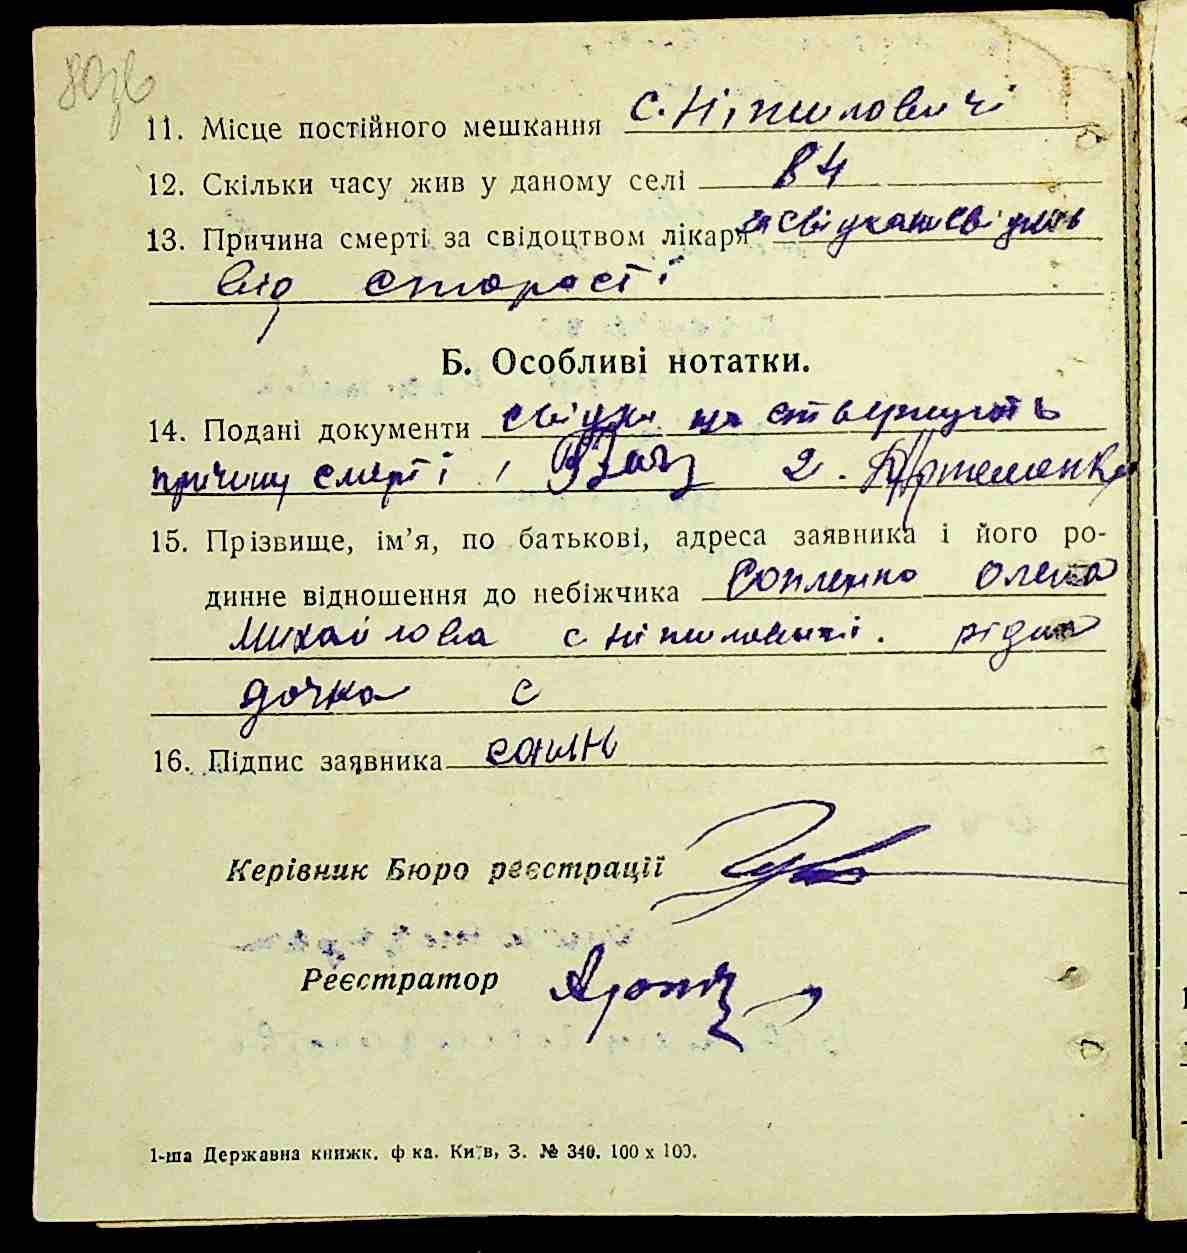 11. Місце постійного мешкання с. Ніжиловичі
12. Скільки часу жив у даному селі 84
13. Причина смерті за свідоцтвом лікаря
від старості
Б. Особливі нотатки.
14. Подані документи свідки що ствержують
причину смерті, 2. Артеменко
15. Прізвище, ім’я, по батькові, адреса заявника і його ро-
динне відношення до небіжчика Олена
Михайлова с Ніжиловичі. рідна
дочка с
16. Підпис заявника
Керівник Бюро реєстрації
Реєстратор
1-ша Державна книжк. ф ка. Київ, З. № 340. 100 х 100.